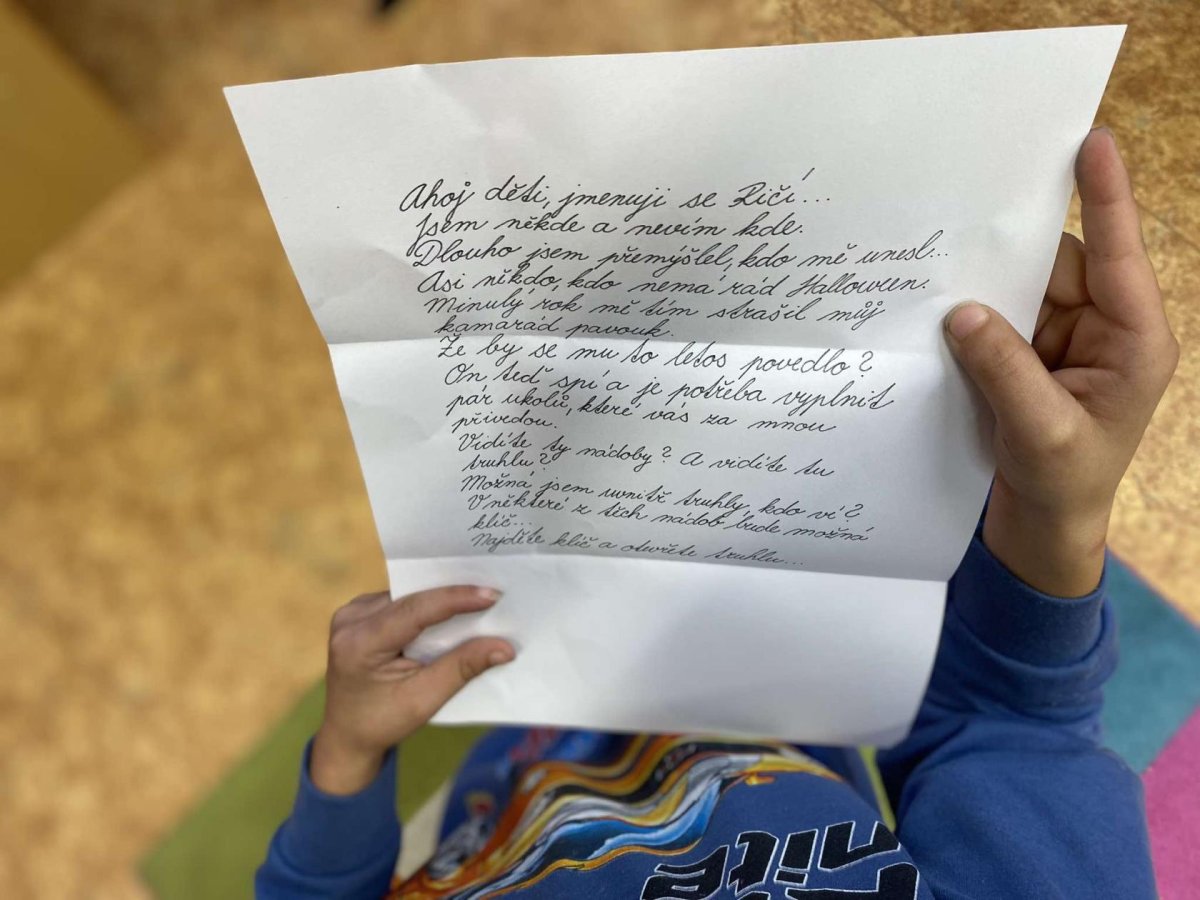 Ahoj děti, jmenuji se Ričí...
Jsem někde a nevím kde.
Dlouho jsem přemýšlel, kdo mě unesl...
Asi někdo, kdo nemá rád Halloween.
Minulý rok mě tím strašil můj
kamarád pavouk.
Že by se mu to letos povedlo?
On teď spí a je potřeba vyplnit
pár úkolů, které vás za mnou
přivedou.
Vidíte ty nádoby? A vidíte tu
truhlu?
Možná jsem uvnitř truhly, kdo ví?
V některé z těch nádob bude možná
klíč...
Najděte klíč a otevřete truhlu...
nit
nite